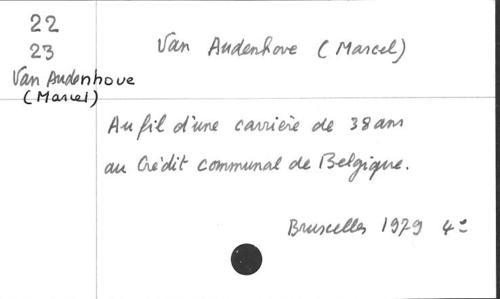 22
23
Van Audenhove
(Marcel)
Van Audenhove (Marcel)
Au fil d'une carrière de 38 ans
au Crédit communal de Belgique.
Bruxelles 1979 4°